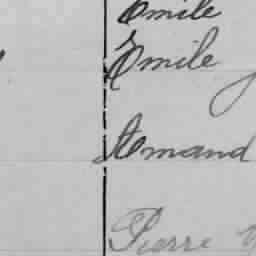 Emile
Emile
Amand
Pierre